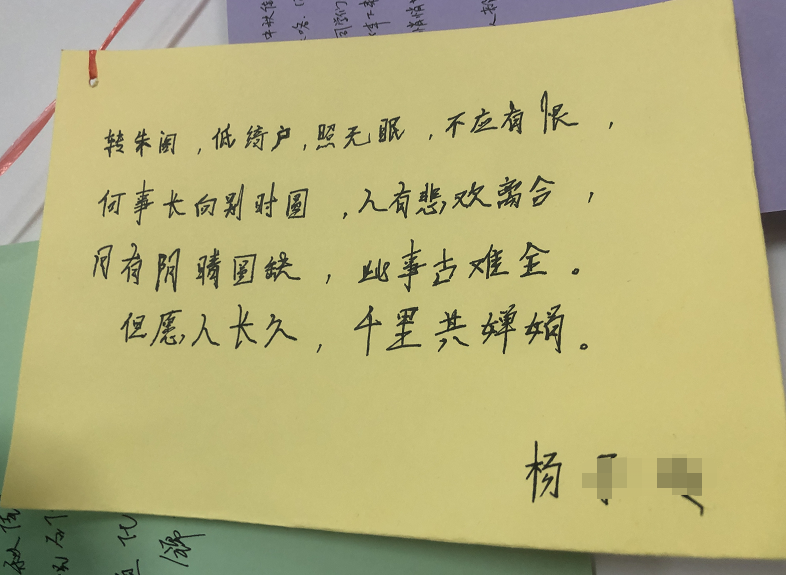 转朱阁，低绮户，照无眠，不应有恨，
何事长向别时圆，人有悲欢离合，
月有阴晴圆缺，此事古难全。
但愿人长久，千里共婵娟。
杨